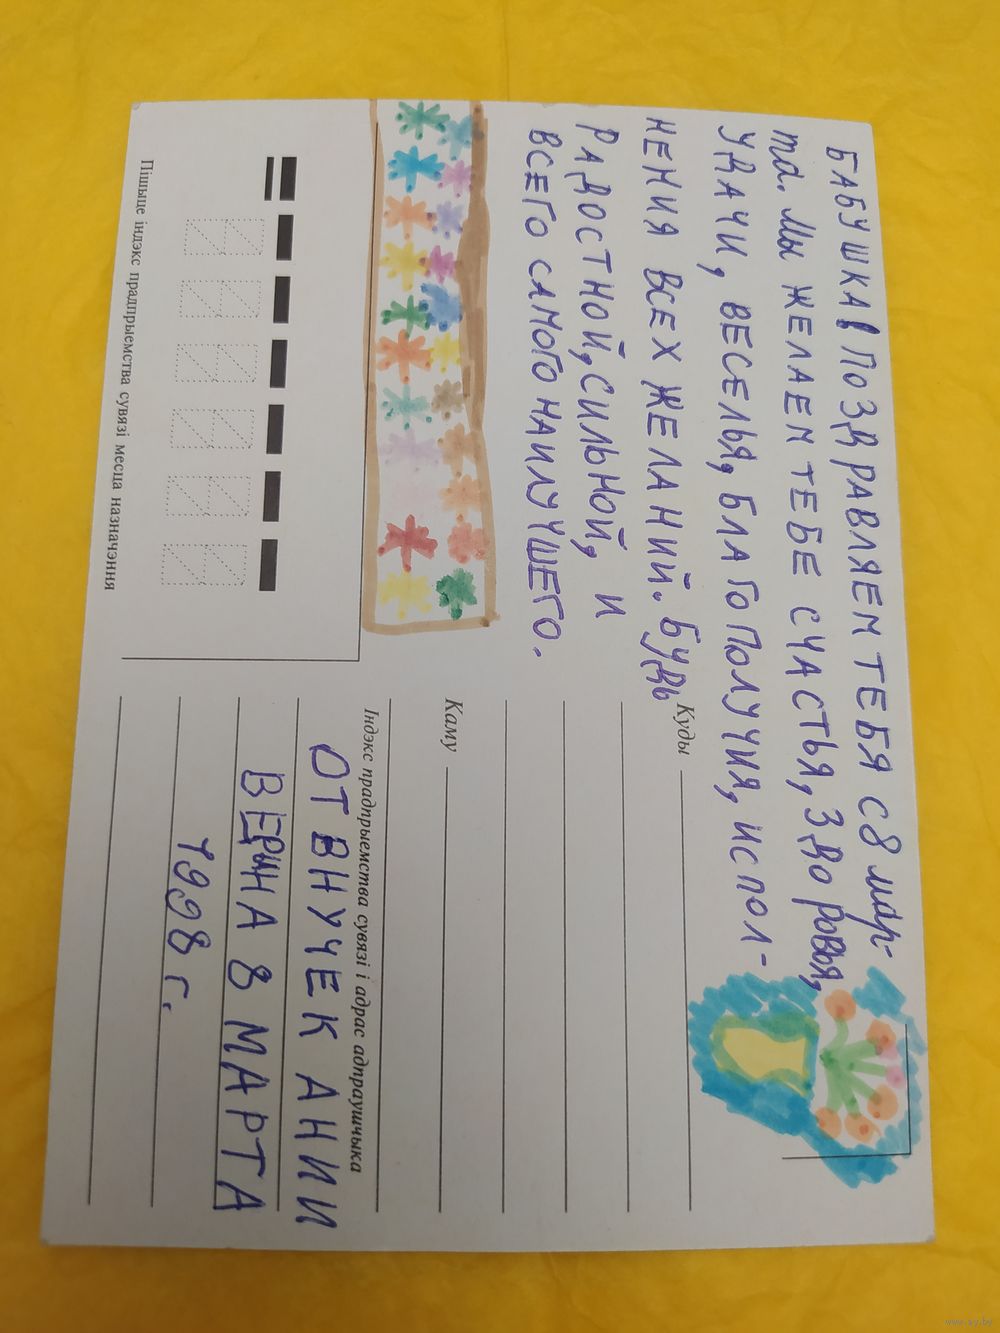 БАБУШКА! ПОЗДРАВЛЯЕМ ТЕБЯ С 8 мар-
та. МЫ ЖЕЛАЕМ ТЕБЕ СЧАСТЬЯ, ЗДОРОВЬЯ,
УДАЧИ, ВЕСЕЛЬЯ, БЛАГОПОЛУЧИЯ, ИСПОЛ-
НЕНИЯ ВСЕХ ЖЕЛАНИЙ. БУДЬ
РАДОСТНОЙ, СИЛЬНОЙ, И
ВСЕГО САМОГО НАИЛУЧШЕГО.
Куды
Каму
Індэкс прадпрыемства сувязі і адрас адпраўшчыка
ОТ ВНУЧЕК АНИИ
НА 8 МАРТА
1998 г.
Пішыце індэкс прадпрыемства сувязі месца назначэння
www.ay.by